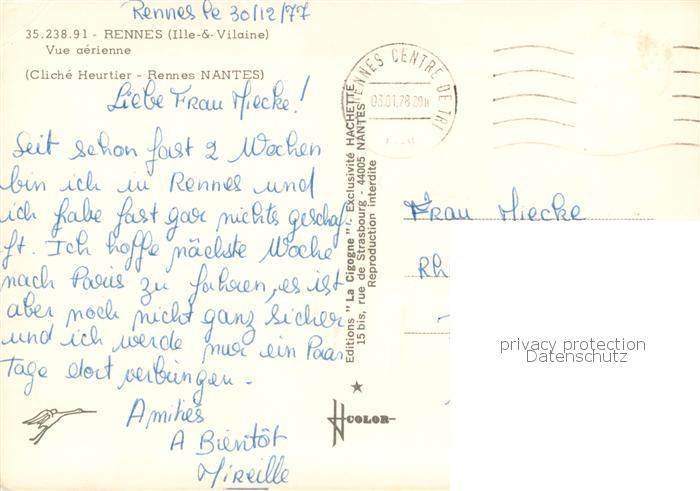 Rennes le 30/12/77
35.238.91 - RENNES (Ille-&-Vilaine)
Vue aérienne
(Cliché Heurtier - Rennes NANTES)
Liebe Frau Miecke!
Seit schon fast 2 Wochen
bin ich in Rennes und
ich habe fast gar nichts gescha-
ft. Ich hoffe nächste Woche
nach Paris zu fahren, es ist
aber noch nicht ganz sicher
und ich werde nur ein Paar
Tage dort verbringen -
Amitiés
A Bientôt
Mireille
RENNES CENTRE DE TRI
03.01.78 20H
Editions "La Cigogne" /. Exclusivité HACHETTE
15 bis, rue de Strasbourg - 44005 NANTES
Reproduction interdite
COLOR
Frau Miecke
Rh
privacy protection
Datenschutz